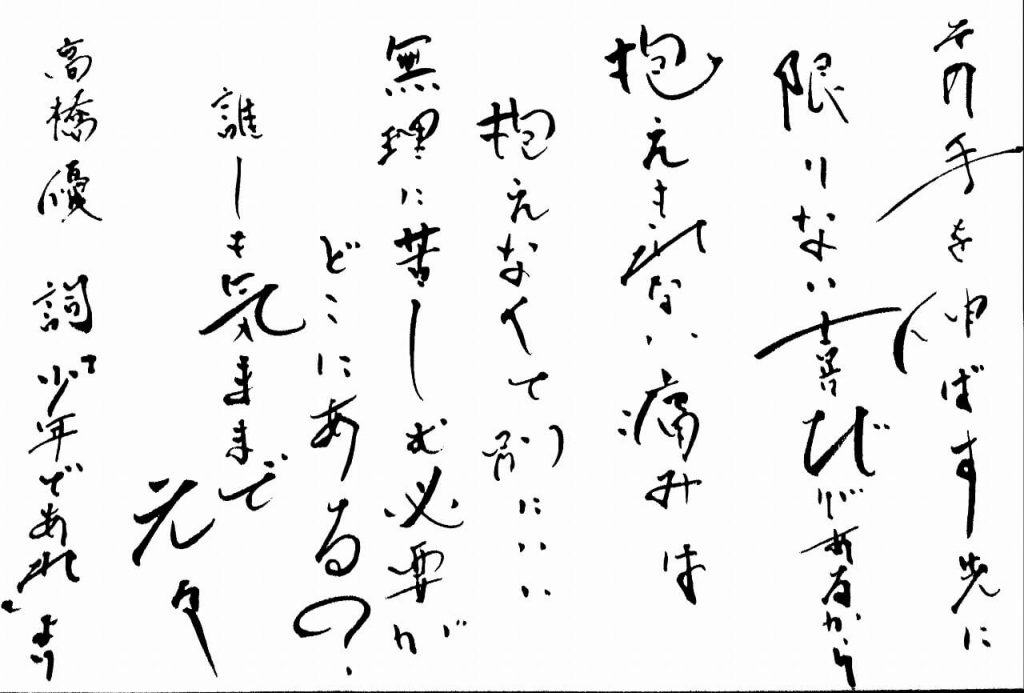 その手を伸ばす先に
限りない喜びがあるから
抱えきれない痛みは
抱えなくて別にいい
無理に苦しむ必要が
どこにあるの?
誰しも気ままで
元々
高橋優 詞『少年であれ』より